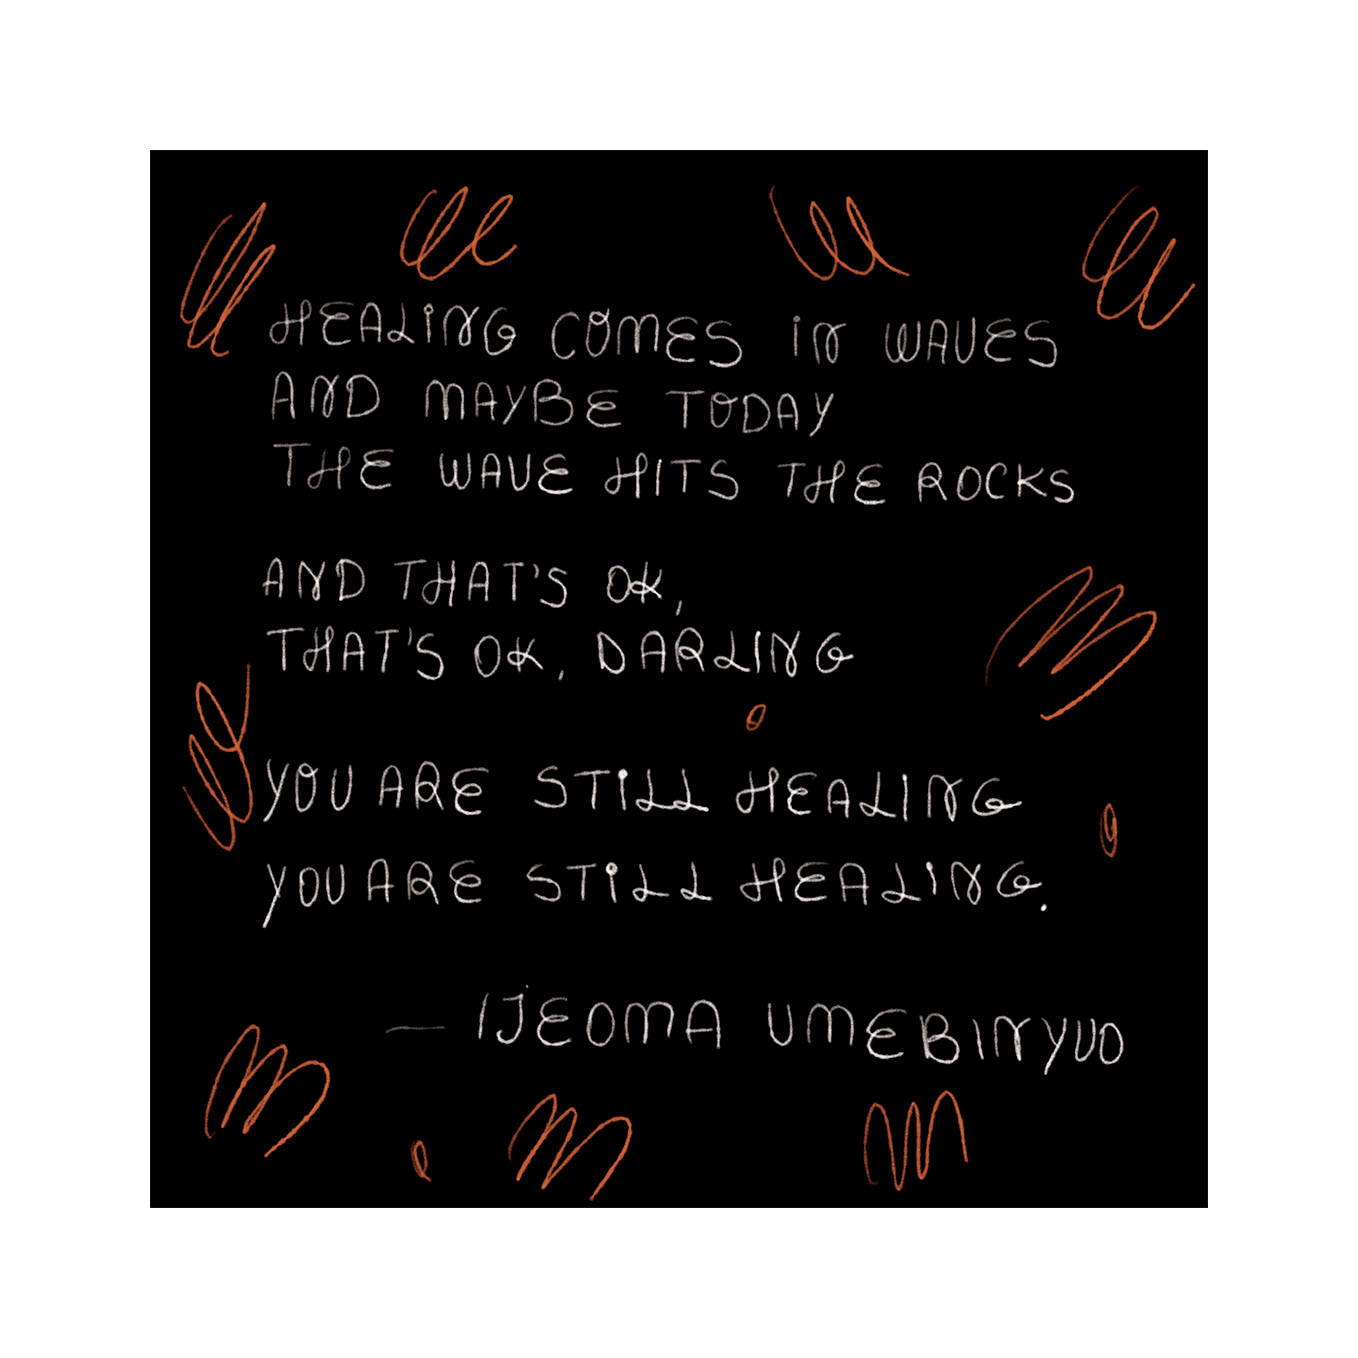 HEALING COMES IN WAVES
AND MAYBE TODAY
THE WAVE HITS THE ROCKS
AND THAT'S OK,
THAT'S OK, DARLING
YOU ARE STILL HEALING
YOU ARE STILL HEALING.
— IJEOMA UMEBINYUO